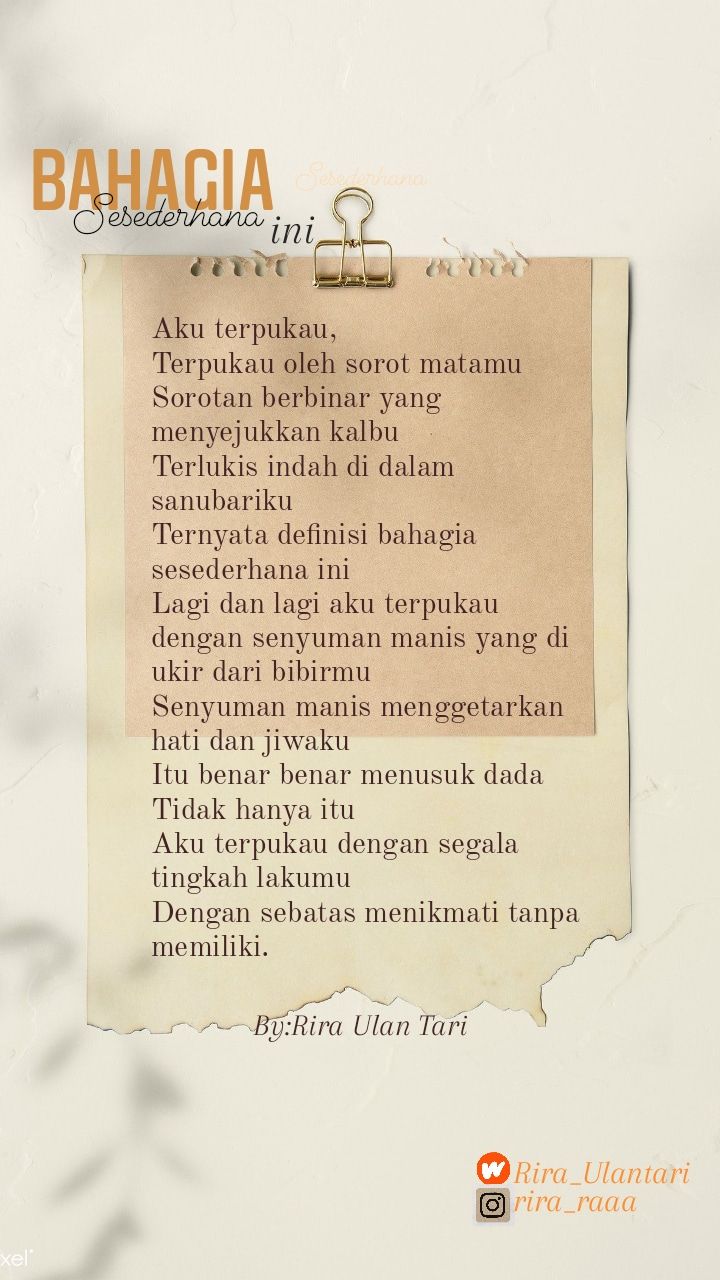 BAHAGIA
Sesederhana
Sesederhana ini
Aku terpukau,
Terpukau oleh sorot matamu
Sorotan berbinar yang
menyejukkan kalbu
Terlukis indah di dalam
sanubariku
Ternyata definisi bahagia
sesederhana ini
Lagi dan lagi aku terpukau
dengan senyuman manis yang di
ukir dari bibirmu
Senyuman manis menggetarkan
hati dan jiwaku
Itu benar benar menusuk dada
Tidak hanya itu
Aku terpukau dengan segala
tingkah lakumu
Dengan sebatas menikmati tanpa
memiliki.
By:Rira Ulan Tari
Rira_Ulantari
rira_raaa
xel